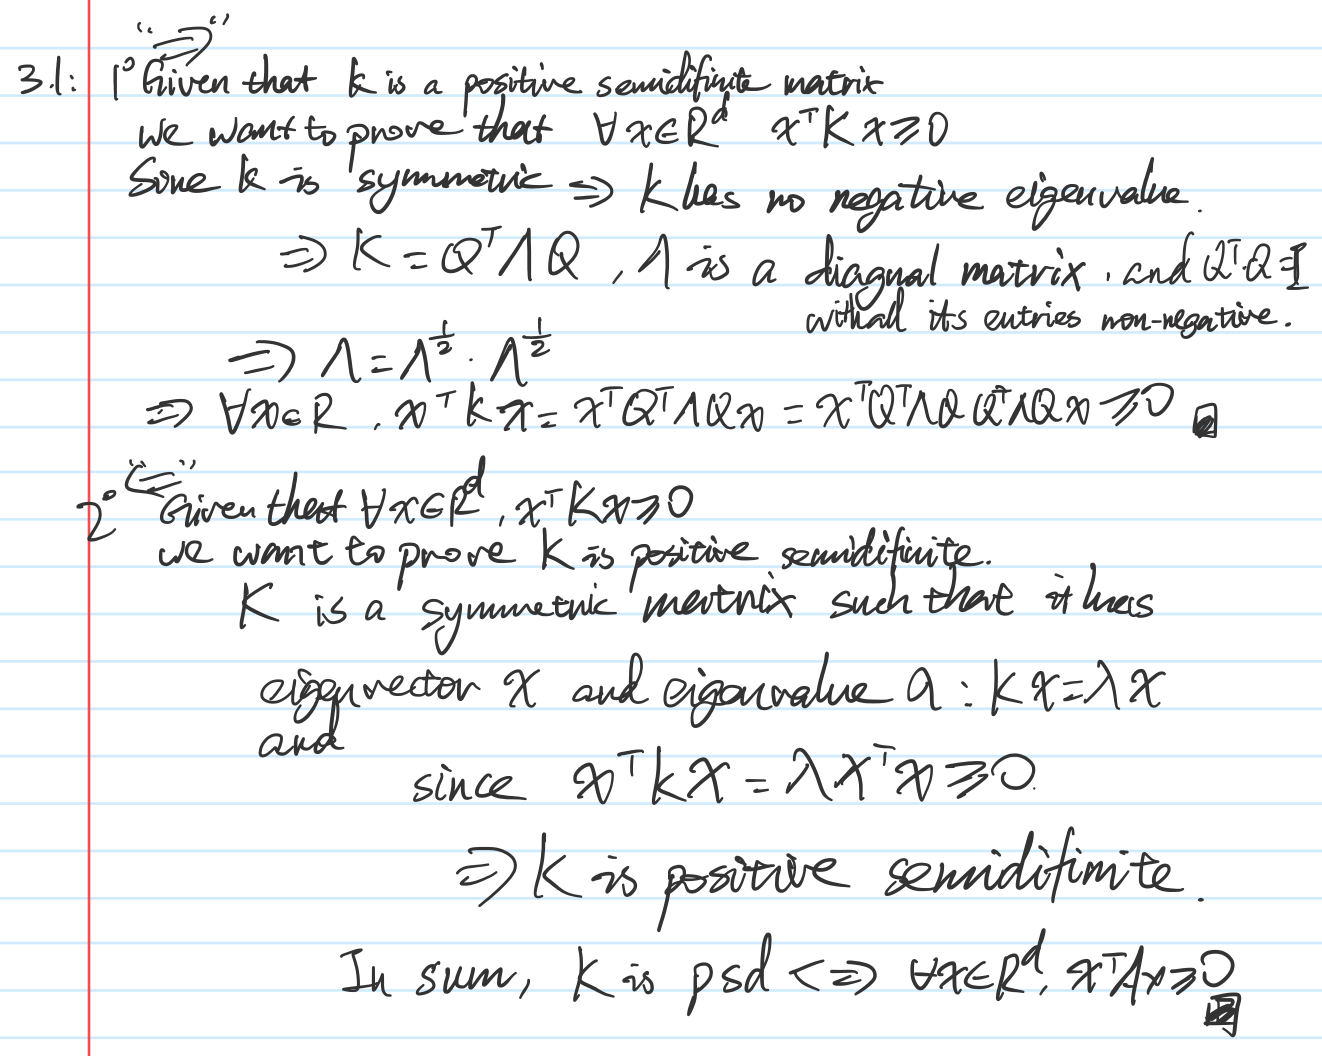 "⇒"
3.1: 1° Given that K is a positive semidifinite matrix
we want to prove that ∀x∈R^d x^T K x ≥ 0
Since K is symmetric ⇒ K has no negative eigenvalue.
⇒ K = Q^T Λ Q , Λ is a diagnal matrix . and Q^T·Q = I
with all its entries non-negative.
⇒ Λ = Λ^{1/2} · Λ^{1/2}
⇒ ∀x∈R , x^T K x = x^T Q^T Λ Q x = x^T Q^T Λ Q Q^T Λ Q x ≥ 0
2° "⇐" Given that ∀x∈R^d , x^T K x ≥ 0
we want to prove K is positive semidifinite.
K is a symmetric matrix such that it has
eigenvector x and eigenvalue a : Kx = λx
and
since x^T K x = λ x^T x ≥ 0.
⇒ K is positive semidifinite.
In sum, K is psd <=> ∀x∈R^d, x^T A x ≥ 0